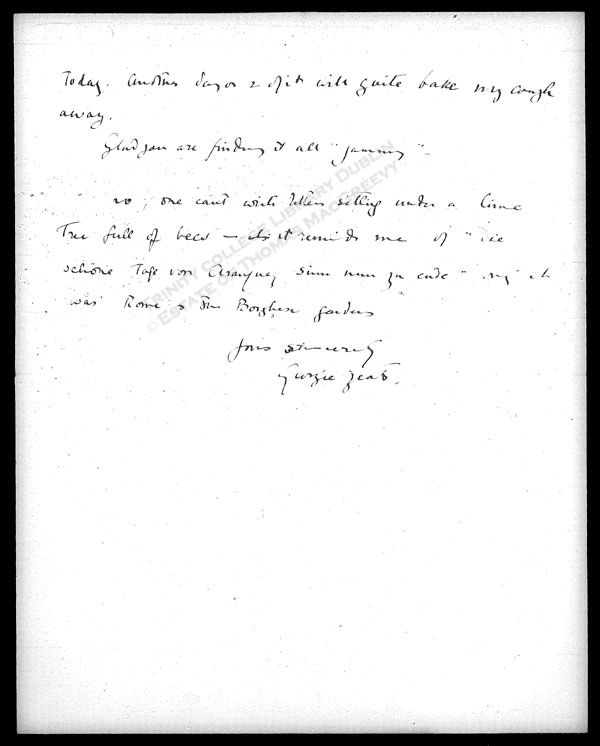 Today. Another day or 2 of it will quite bake my cough
away.
Glad you are finding it all "jammy".
No, one can't write letters sitting under a lime
Tree full of bees — it reminds me of "Die
schöne Tage von Aranjuez sinn nun zu ende" only it
was Rome & the Borghese gardens
Yours sincerely
Georgie Yeats.
TRINITY COLLEGE LIBRARY DUBLIN
© ESTATE OF THOMAS MACGREEVY